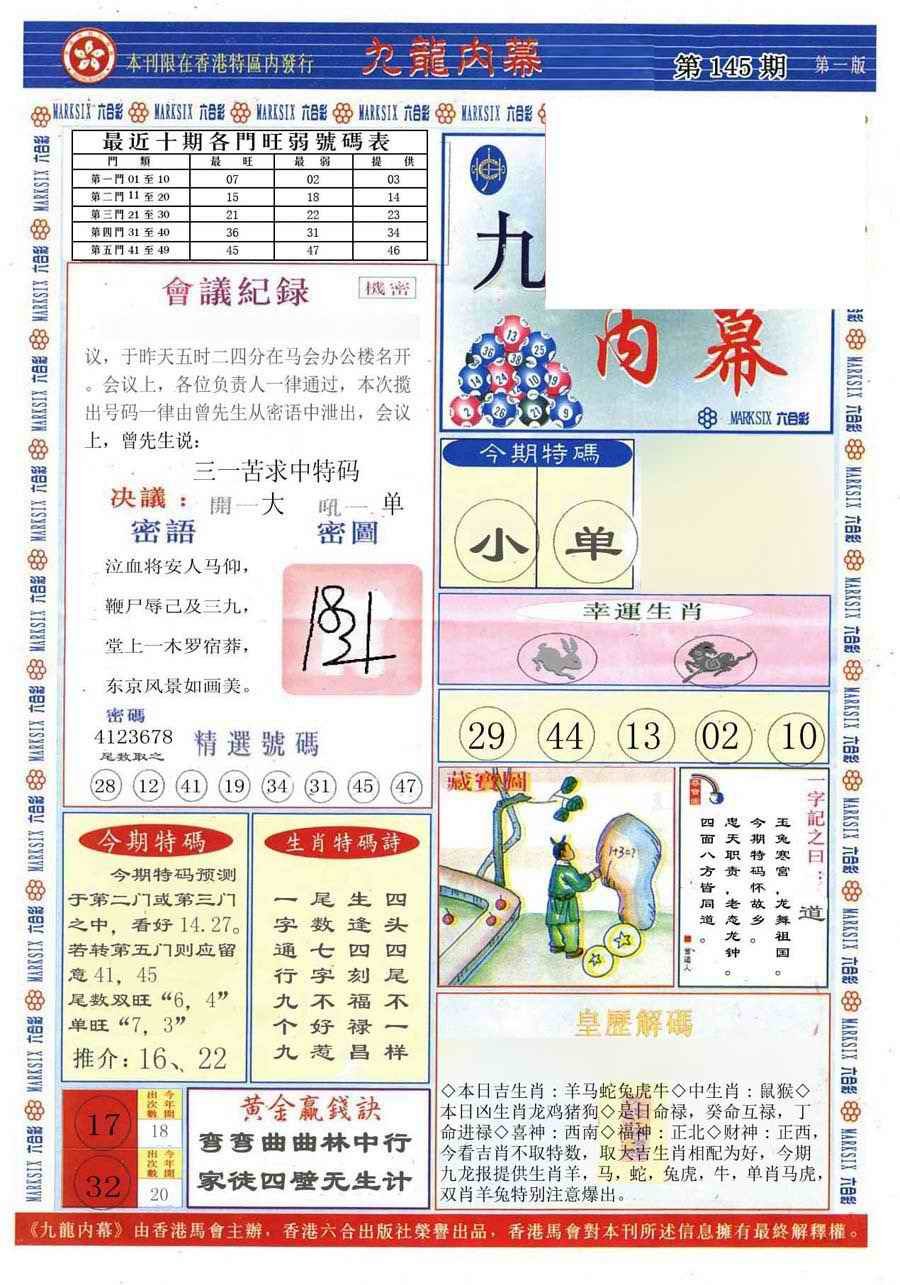 本刊限在香港特區内發行
九龍内幕
第 145 期
第一版
MARKSIX 六合彩
最近十期各門旺弱號碼表
門 類 最 旺 最 弱 提 供
第一門 01 至 10 07 02 03
第二門 11 至 20 15 18 14
第三門 21 至 30 21 22 23
第四門 31 至 40 36 31 34
第五門 41 至 49 45 47 46
會議紀録
機密
议，于昨天五时二四分在马会办公楼名开
。会议上，各位负责人一律通过，本次揽
出号码一律由曾先生从密语中泄出，会议
上，曾先生说：
三一苦求中特码
决議：
開一大 吼一 单
密語
密圖
泣血将安人马仰，
鞭尸辱己及三九，
堂上一木罗宿莽，
东京风景如画美。
密碼
4123678
尾数取之
精選號碼
28 12 41 19 34 31 45 47
九
内幕
13
36 38 25
24 10 19
2 26 21 9
MARKSIX 六合彩
今期特碼
小 单
幸運生肖
29 44 13 02 10
藏寶圖
1+3=?
一字記之曰：
道
玉兔寒宫，龙舞祖国。
今期特码怀故乡。
忠天职责，老态龙钟。
四面八方皆同道。
曾道人
今期特碼
今期特码预测
于第二门或第三门
之中，看好 14.27。
若转第五门则应留
意 41，45
尾数双旺“6，4”
单旺“7，3”
推介：16、22
生肖特碼詩
四头四尾不一样
生逢四刻福禄昌
尾数七字不好惹
一字通行九个九
17
今年開出次數
18
32
今年開出次數
20
黄金贏錢訣
弯弯曲曲林中行
家徒四壁无生计
皇歷解碼
◇本日吉生肖：羊马蛇兔虎牛◇中生肖：鼠猴◇
本日凶生肖龙鸡猪狗◇是日命禄，癸命互禄，丁
命进禄◇喜神：西南◇福神：正北◇财神：正西，
今看吉肖不取特数，取大吉生肖相配为好，今期
九龙报提供生肖羊，马，蛇，兔虎，牛，单肖马虎，
双肖羊兔特别注意爆出。
《九龍内幕》由香港馬會主辦，香港六合出版社榮譽出品，香港馬會對本刊所述信息擁有最終解釋權。